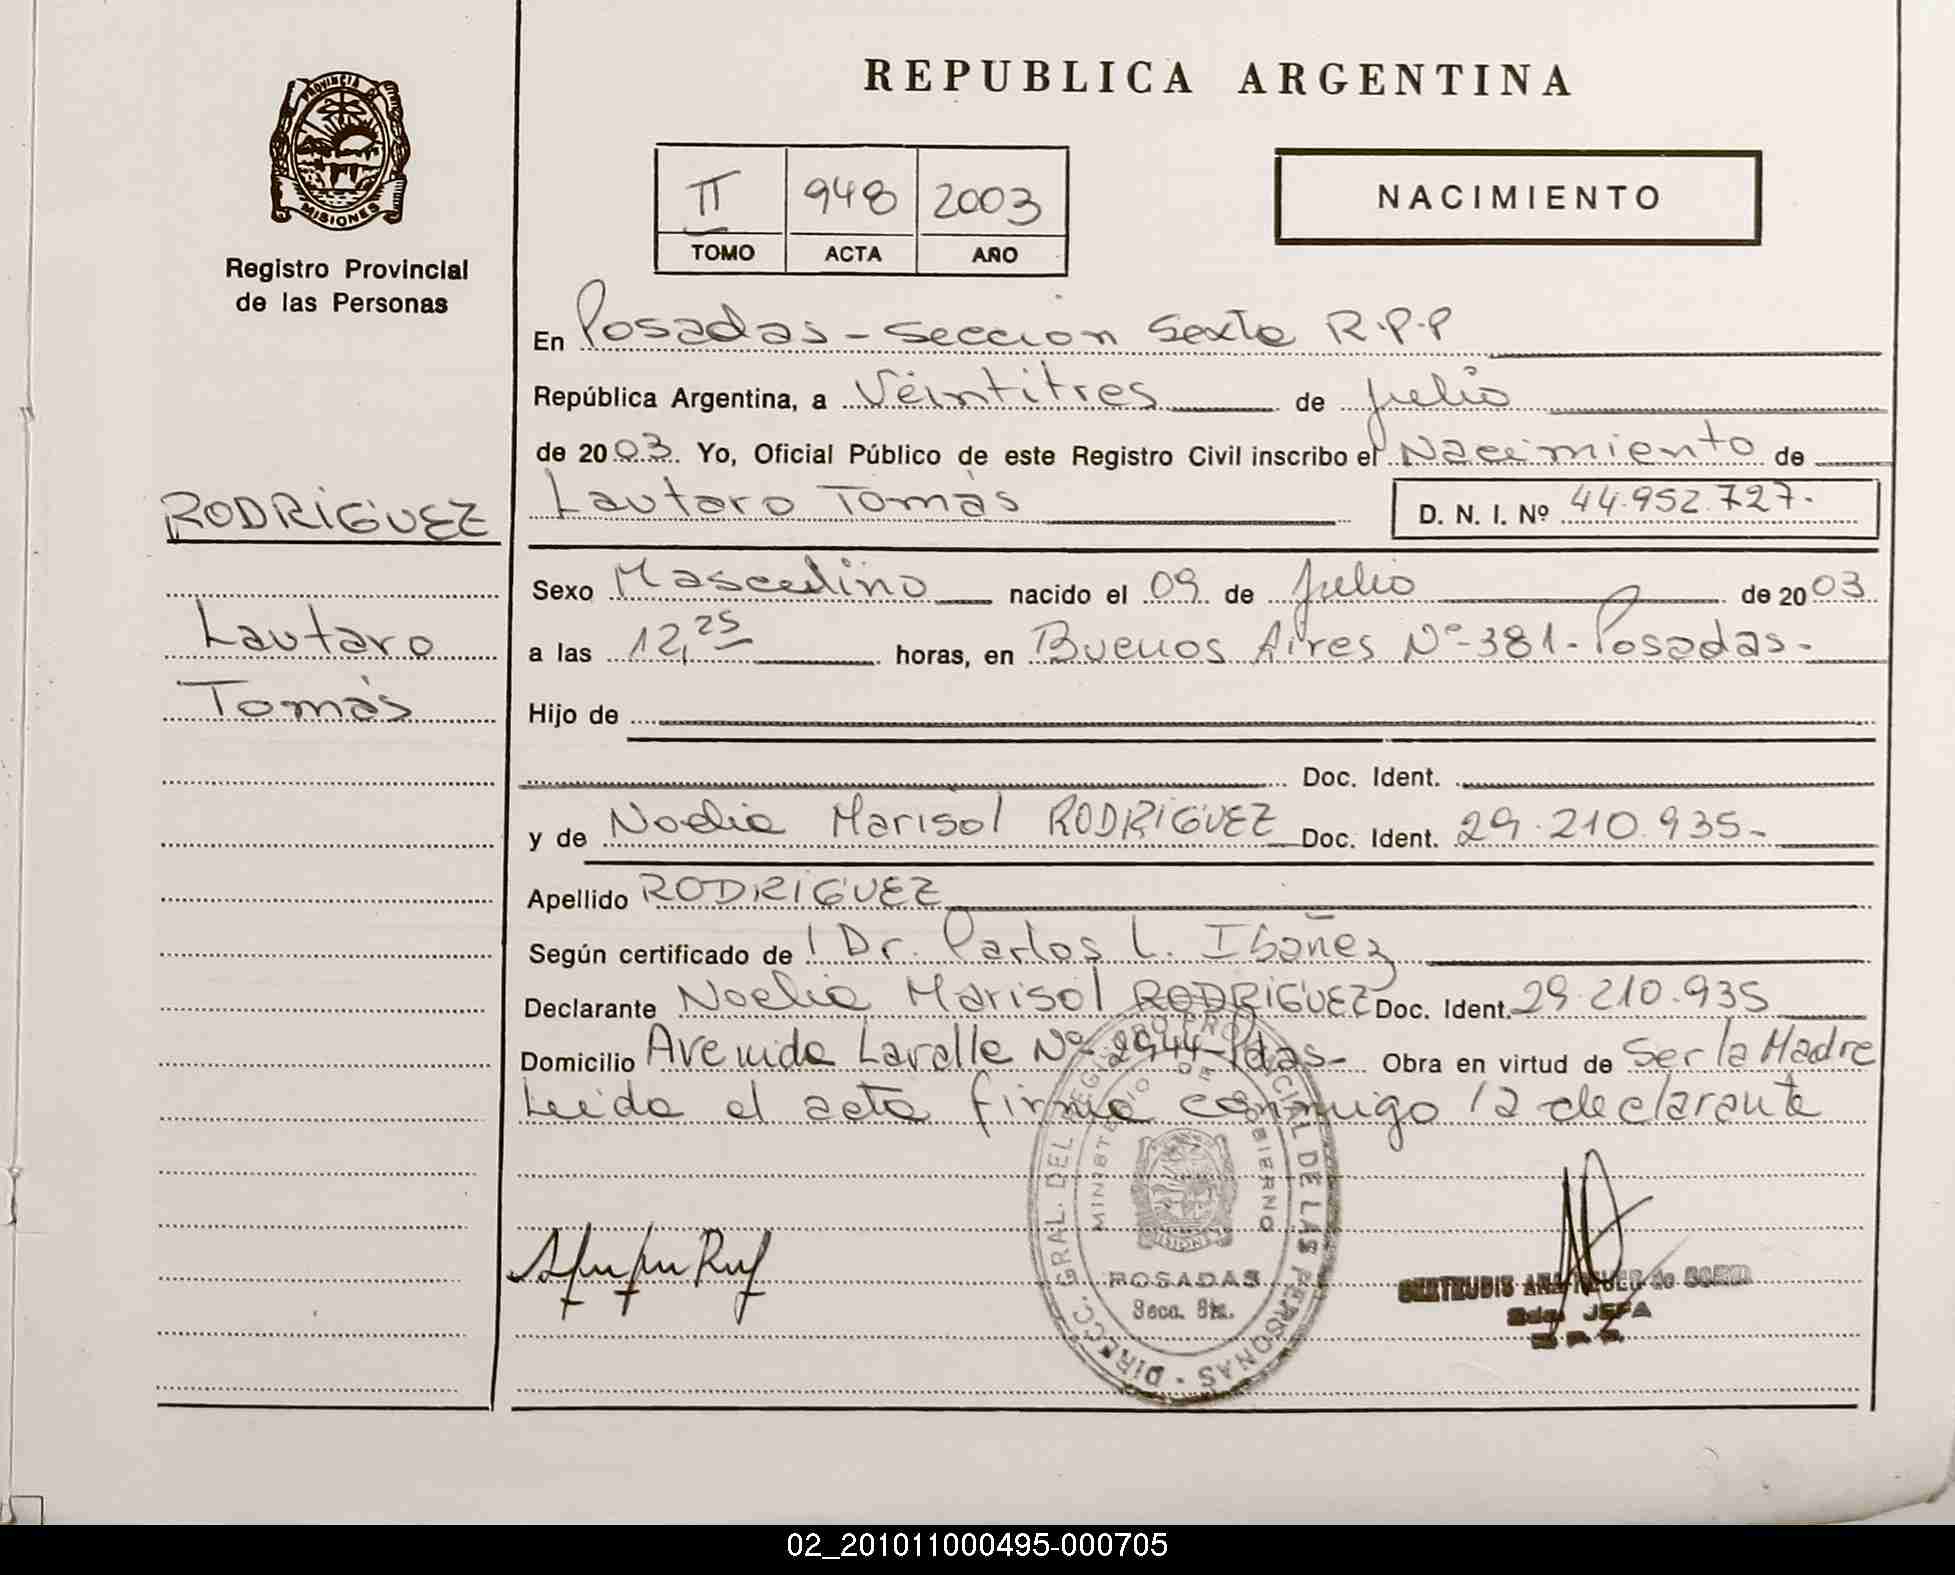 REPUBLICA ARGENTINA
PROVINCIA DE
MISIONES
Registro Provincial
de las Personas
II 948 2003
TOMO ACTA AÑO
NACIMIENTO
RODRÍGUEZ
Lautaro
Tomás
En Posadas - Sección Sexta R.P.P
República Argentina, a Veintitres de julio
de 2003. Yo, Oficial Público de este Registro Civil inscribo el Nacimiento de
Lautaro Tomás D. N. I. Nº 44.952.727.
Sexo Masculino nacido el 09 de julio de 2003
a las 12,25 horas, en Buenos Aires Nº-381-Posadas-
Hijo de
Doc. Ident.
y de Noelia Marisol RODRÍGUEZ Doc. Ident. 29.210.935-
Apellido RODRÍGUEZ
Según certificado de l Dr. Carlos L. Ibañez
Declarante Noelia Marisol RODRÍGUEZ Doc. Ident. 29.210.935
Domicilio Avenida Lavalle Nº 2944-Pdas- Obra en virtud de Ser la Madre
Leida el acta firma conmigo la declarante
DIRECC. GRAL. DEL REGISTRO PROVINCIAL DE LAS PERSONAS
MINISTERIO DE GOBIERNO
MISIONES
POSADAS
Secc. 6ta.
GERTRUDIS ANA de
JEFA
02_201011000495-000705